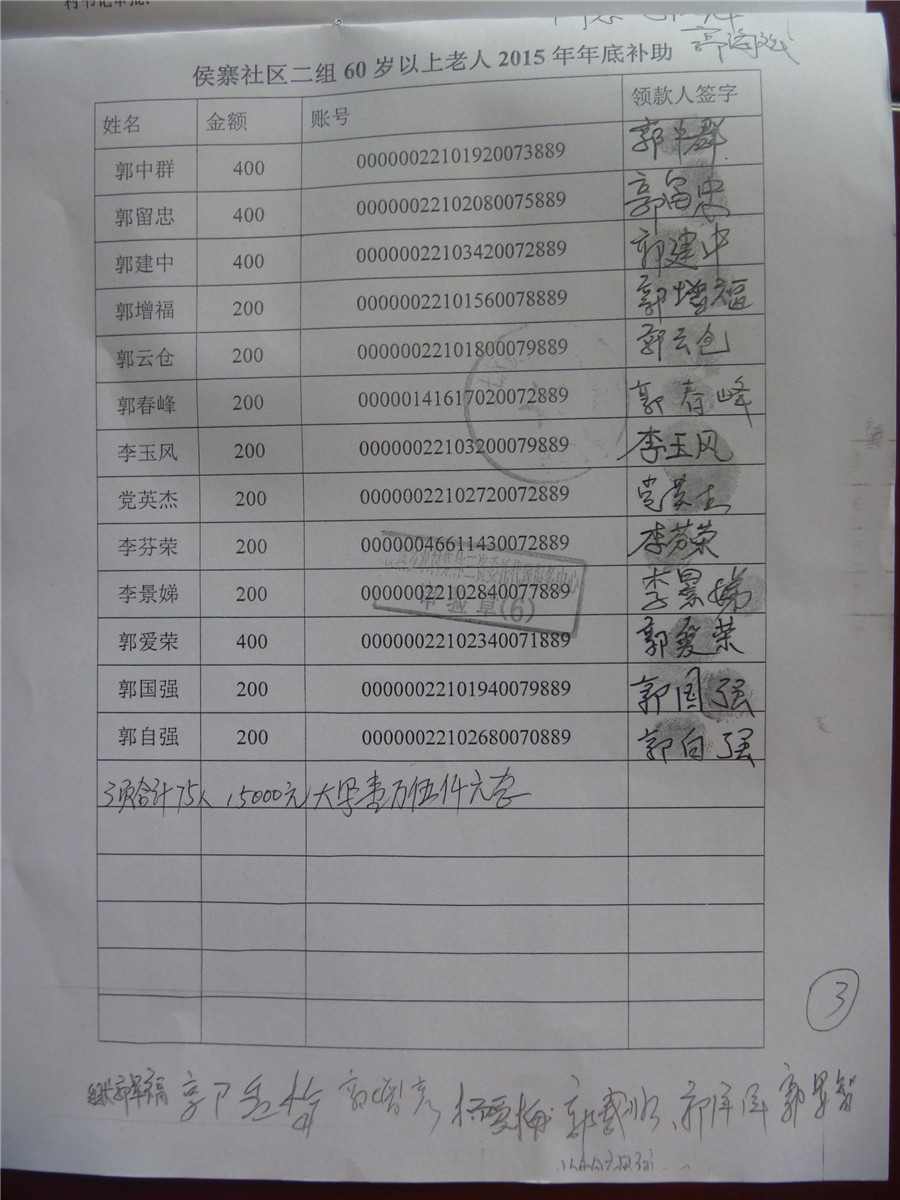 村书记审批:
侯寨社区二组 60 岁以上老人 2015 年年底补助
姓名 金额 账号 领款人签字
郭中群 400 00000022101920073889 郭中群
郭留忠 400 00000022102080075889 郭留忠
郭建中 400 00000022103420072889 郭建中
郭增福 200 00000022101560078889 郭增福
郭云仓 200 00000022101800079889 郭云仓
郭春峰 200 00000141617020072889 郭春峰
李玉风 200 00000022103200079889 李玉风
党英杰 200 00000022102720072889 党英杰
李芬荣 200 00000046611430072889 李芬荣
李景娣 200 00000022102840077889 李景娣
郭爱荣 400 00000022102340071889 郭爱荣
郭国强 200 00000022101940079889 郭国强
郭自强 200 00000022102680070889 郭自强
3项合计75人 15000元 大写壹万伍仟元整
审验章(6)
3